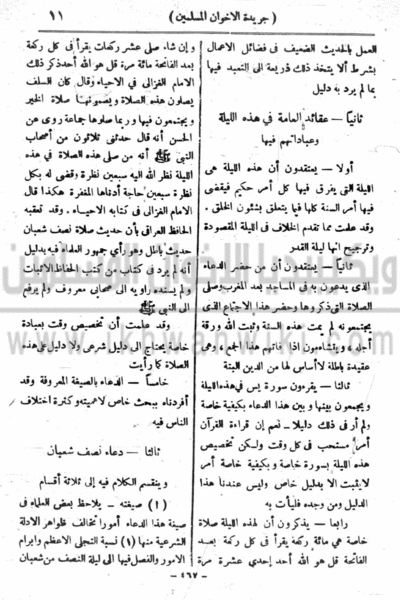 ( جريدة الاخوان المسلمين )
١١
العمل بالحديث الضعيف فى فضائل الاعمال
بشرط ألا يتخذ ذلك ذريعة الى التعبد فيها
بما لم يرد به دليل
ثانياً — عقائد العامة في هذه الليلة
وعباداتهم فيها
أولا — يعتقدون أن هذه الليلة هى
الليلة التى يفرق فيها كل أمر حكيم فيقضى
فيها أمر السنة كلها فيما يتعلق بشئون الخلق .
وقد علمت مما تقدم الخلاف فى الليلة المقصودة
وترجيح انها ليلة القدر
ثانياً — يعتقدون أن من حضر الدعاء
الذى يدعون به فى المساجد بعد المغرب وصلى
الصلاة التى ذكروها وحضر هذا الاجتماع الذى
يجتمعونه لم يمت هذه السنة وثبت الله ورقة
أجله ويتشاءمون اذا فاتهم هذا الجمع ، وهى
عقيدة باطلة لا أساس لها من الدين البتة
ثالثا — يقرءون سورة يس فى هذه الليلة
ويجمعون بينها وبين هذا الدعاء بكيفية خاصة
ولم أر فى ذلك دليلا — نعم إن قراءة القرآن
أمر مستحب فى كل وقت ولكن تخصيص
هذه الليلة بسورة خاصة وبكيفية خاصة أمر
لا يثبت الا بدليل خاص وليس عندنا هذا
الدليل ومن وجده فليأت به
رابعا — يذكرون أن لهذه الليلة صلاة
خاصة هى مائة ركعة يقرأ فى كل ركعة بعد
الفاتحة قل هو الله أحد إحدي عشرة مرة
وإن شاء صلى عشر ركعات يقرأ فى كل ركعة
بعد الفاتحة مائة مرة قل هو الله أحد كذا ذكر
الامام الغزالى فى الاحياء وقال كان السلف
يصلون هذه الصلاة ويسمونها صلاة الخير
ويجتمعون فيها وربما صلوها جماعة روى عن
الحسن أنه قال حدثنى ثلاثون من أصحاب
النبى ﷺ أنه من صلى هذه الصلاة فى هذه
الليلة نظر الله اليه سبعين نظرة وقضى له بكل
نظرة سبعين حاجة أدناها المغفرة هكذا قال
الامام الغزالى فى كتابه الاحياء . وقد تعقبه
الحافظ العراقى بأن حديث صلاة نصف شعبان
حديث باطل وهو رأي جمهور العلماء فيه بدليل
أنه لم يرد فى كتاب من كتب الحفاظ الاثبات
ولم يسنده راويه الى صحابى معروف ولم يرفع
الى النبى ﷺ
وقد علمت أن تخصيص وقت بعبادة
خاصة يحتاج الى دليل شرعى ولا دليل فى هذه
الصلاة كما رأيت
خامساً — الدعاء بالصيغة المعروفة وقد
أفردناه ببحث خاص لاهميته وكثرة اختلاف
الناس فيه
ثالثاً — دعاء نصف شعبان
وينقسم الكلام فيه إلى ثلاثة أقسام
( ١ ) صيغته — يلاحظ بعض العلماء فى
صيغة هذا الدعاء أمورا تخالف ظواهر الادلة
الشرعية منها (١) نسبة التجلى الاعظم وابرام
الامور والفصل فيها الى ليلة النصف من شعبان
— ٤٦٧ —